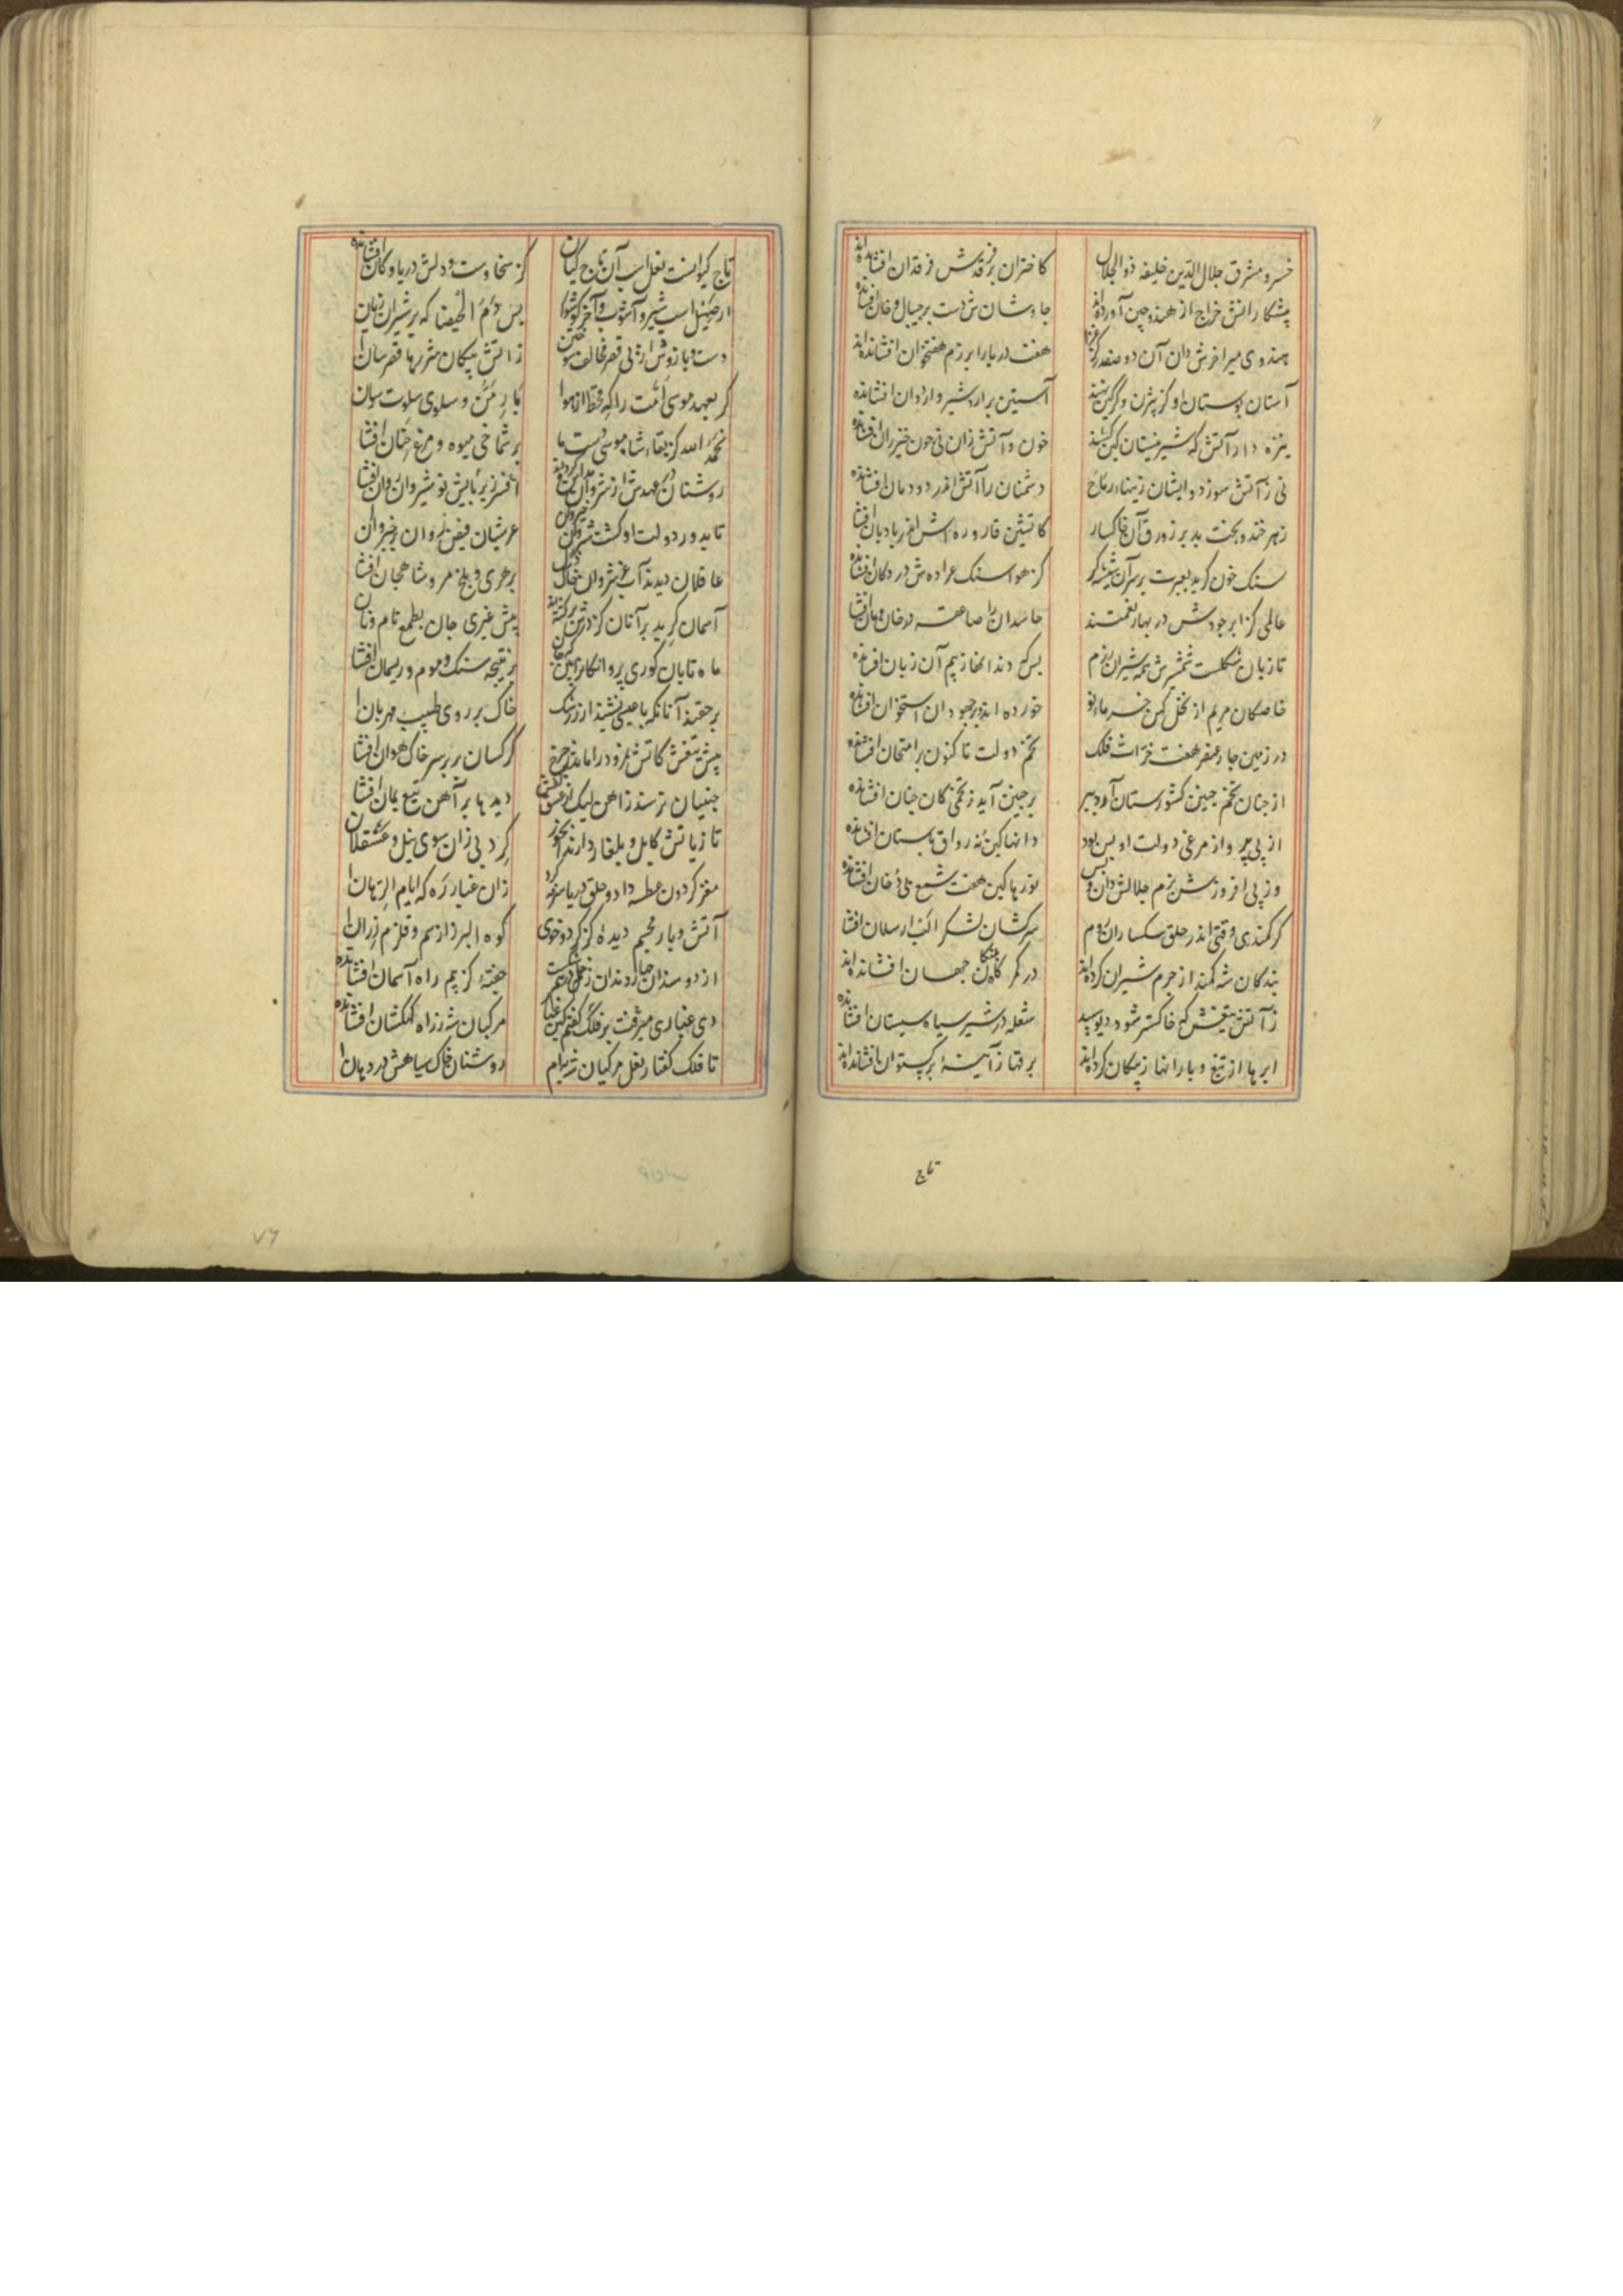 خسرو مشرق جلال الدین خلیفه ذوالجلال کاختران بر فرقدش فرقدان افشانده اند
پیشکارانش خراج از هند و چین آورده اند جاوشان شن دست بر جیپال و خان افشانده
هندوی میر اخرش دان آن دو صفدر کز غزا هفت دریا را برزم هفتخوان افشانده اند
آستان بوستان او کز بیژن و گرگین نهند آستین بر اردشیر و اردوان افشانده
نیزه دار آتش که شیر نیستان کین کشند خون و آتش زان نی چون خیزران افشانده
نی ز آتش سوزد و ایشان ز نیها در رماح دشمنان را آتش اندر دودمان افشانده
زهر خندد بخت بد بر زورق آن خاکسار کاتشین قاروره اش اندر بادبان افشا
سنک خون کرید بعبرت بر سر آن شیشه کر کز هوا سنک عراده ش در دکان افشانده
عالمی کز ابر جودش در بهار نعمتند حاسدان را صاعقه در خان و مان افشا
تا زبان شکلست شمشیرش همه شیران رزم بس که دندانها ز بیم آن زبان افشانده
خاصکان مریم از نخل کهن خرماء نو خورده اند و بر جهودان استخوان افشانده
در زمین چار عنصر هفت حراث فلک تخم دولت تا کنون بر امتحان افشانده
از جنان تخم جنین کشورستان آورد بر بر چنین آید ز تخمی کان چنان افشانده
از پی پر واز مرغی دولت او بس بود دانها کین نه رواق باستان افشانده
وز پی افروزش بزم جلالش دان و بس نورها کین هفت شمع بی دخان افشانده
کر کمندی وقتی اندر حلق سکساران روم سرکشان لشکر الب ارسلان افشا
بندکان شه کمند از چرم شیران کرده اند در کمرکاه پلنکان جهان افشانده اند
ز آتش تیغش که خاکستر شود دیو سپید شعله در شیر سیاه سیستان افشانده
ابرها از تیغ و بارانها ز پیکان کرده اند برقها ز آیینهٔ برکستوان افشانده اند
تاج
تاج کیوانست نعل اسب آن تاج کیان کز سخا دست و دلش دریا و کان افشانده
ار صهیل اسب شیر آشوب او بس دم الحیضا که بر شیران ژیان
دست و بازوش از پی قصر مخالف ز آتش پیکان شررها قصرسان ا
کر بعهد موسی امت را که قحط از هوا بار من و سلوی سلوت رسان
نحمد الله کز بقاء شاه موسی دست ما بر شماخی میوه و مرغ جنان افشا
روشنان در عهدش از شروان مداین کرده اند افسر زیر پایش نوشیروان روان افشا
تابدور دولت او کشت شروان خیروان عرشیان فیض روان بر خیروان
عاقلان دیدند آب عز شروان خاک ذل بر هری و بلخ و مرو شاهجان افشا
آسمان کرید بر آنان کز درش برکشته پیش غیری جان بطمع نام و نان
ماه تابان کوری پروانکان بین که جان بر نتیجه سنک و موم و ریسمان افشا
بر حقند آنانکه با عیسی نشیند ار ز رشک خاک بر روی طبیب مهربان ا
پیش تیغش کاتش نمرود را ماند ز چرخ کرکسان پر بر سر خاک هوان افشا
جنیان ترسند ز آهن لیک از عشق کفش دیدها بر آهن تیغ یمان افشا
تا ز بانش کابل و بلغار دارند بخور کرد پی زان سوی نیل و عسقلان
مغز کردون عطسه داد و حلق دریا سرفه کرد زان غبار ره که ایام الرهان ا
آتش و باد مجسم دیده کز کرد و خوی کوه البرز از سم و قلزم ز ران ا
از دو سندان چار دندان زحل در هم شکست جفتهٔ کز بیم راه آسمان افشانده
دی غباری میرفت بر فلک گفتم کین غبار مرکبان شه ز راه کهکشان افشانده
تا فلک کفتا ز نعل مرکبان شه پرام روشنان خاک سیاهش در دهان ا
۷۶